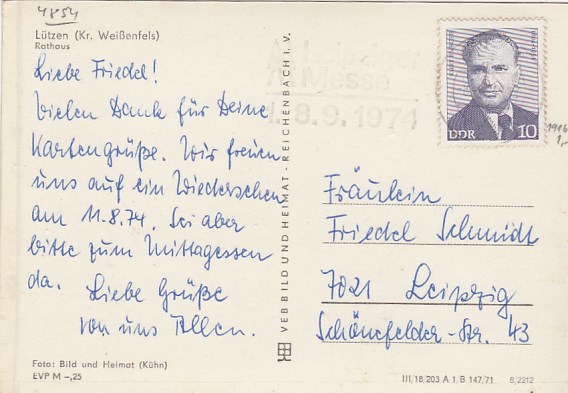 4854
Lützen (Kr. Weißenfels)
Rathaus
Liebe Friedel!
Vielen Dank für Deine
Kartengrüße. Wir freuen
uns auf ein Wiedersehen
am 11.8.74. Sei aber
bitte zum Mittagessen
da. Liebe Grüße
von uns Allen.
Foto: Bild und Heimat (Kühn)
EVP M –,25
VEB BILD UND HEIMAT · REICHENBACH I. V.
Leipziger
Messe
1.-8.9.1974
DDR 10
1916
1,-
Fräulein
Friedel Schmidt
7021 Leipzig
Schönefelder-Str. 43
III/18/203 A 1 B 147/71 8/2212